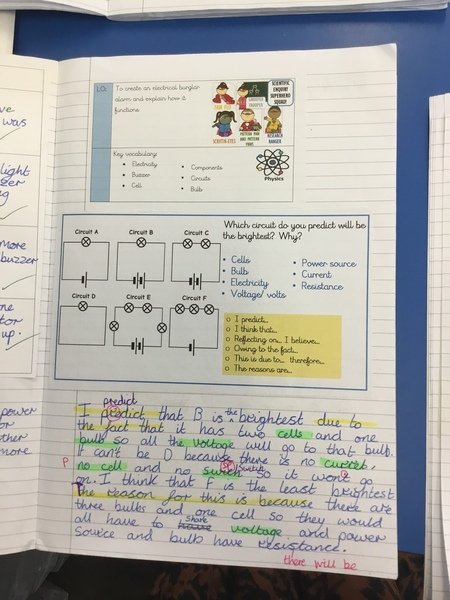 ve
was
light
zer
ng
more
buzzer
ne
tor
up.
power
or
ther
more
LO:
To create an electrical burglar
alarm and explain how it
functions
SCIENTIFIC
ENQUIRY
SUPERHERO
SQUAD
FAIR FLO
GROUPER
TROOPER
SCRUTIN-EYES
PATTERN PAM
AND PATTERN
PAWS
RESEARCH
RANGER
Key vocabulary:
• Electricity
• Buzzer
• Cell
• Components
• Circuits
• Bulb
Physics
Circuit A
Circuit B
Circuit C
Circuit D
Circuit E
Circuit F
Which circuit do you predict will be
the brightest? Why?
• Cells
• Bulb
• Electricity
• Voltage/ volts
• Power source
• Current
• Resistance
o I predict...
o I think that...
o Reflecting on... I believe...
o Owing to the fact...
o This is due to... therefore...
o The reasons are...
predict
I predict that B is the brightest due to
the fact that it has two cells and one
bulb so all the voltage will go to that bulb.
It can't be D because there is no curret,
P
no cell and no switch so it wont go
on. I think that F is the least brightest
The reason for this is because there are
three bulbs and one cell so they would
all have to share voltage and power
source and bulb have resistance.
there will be